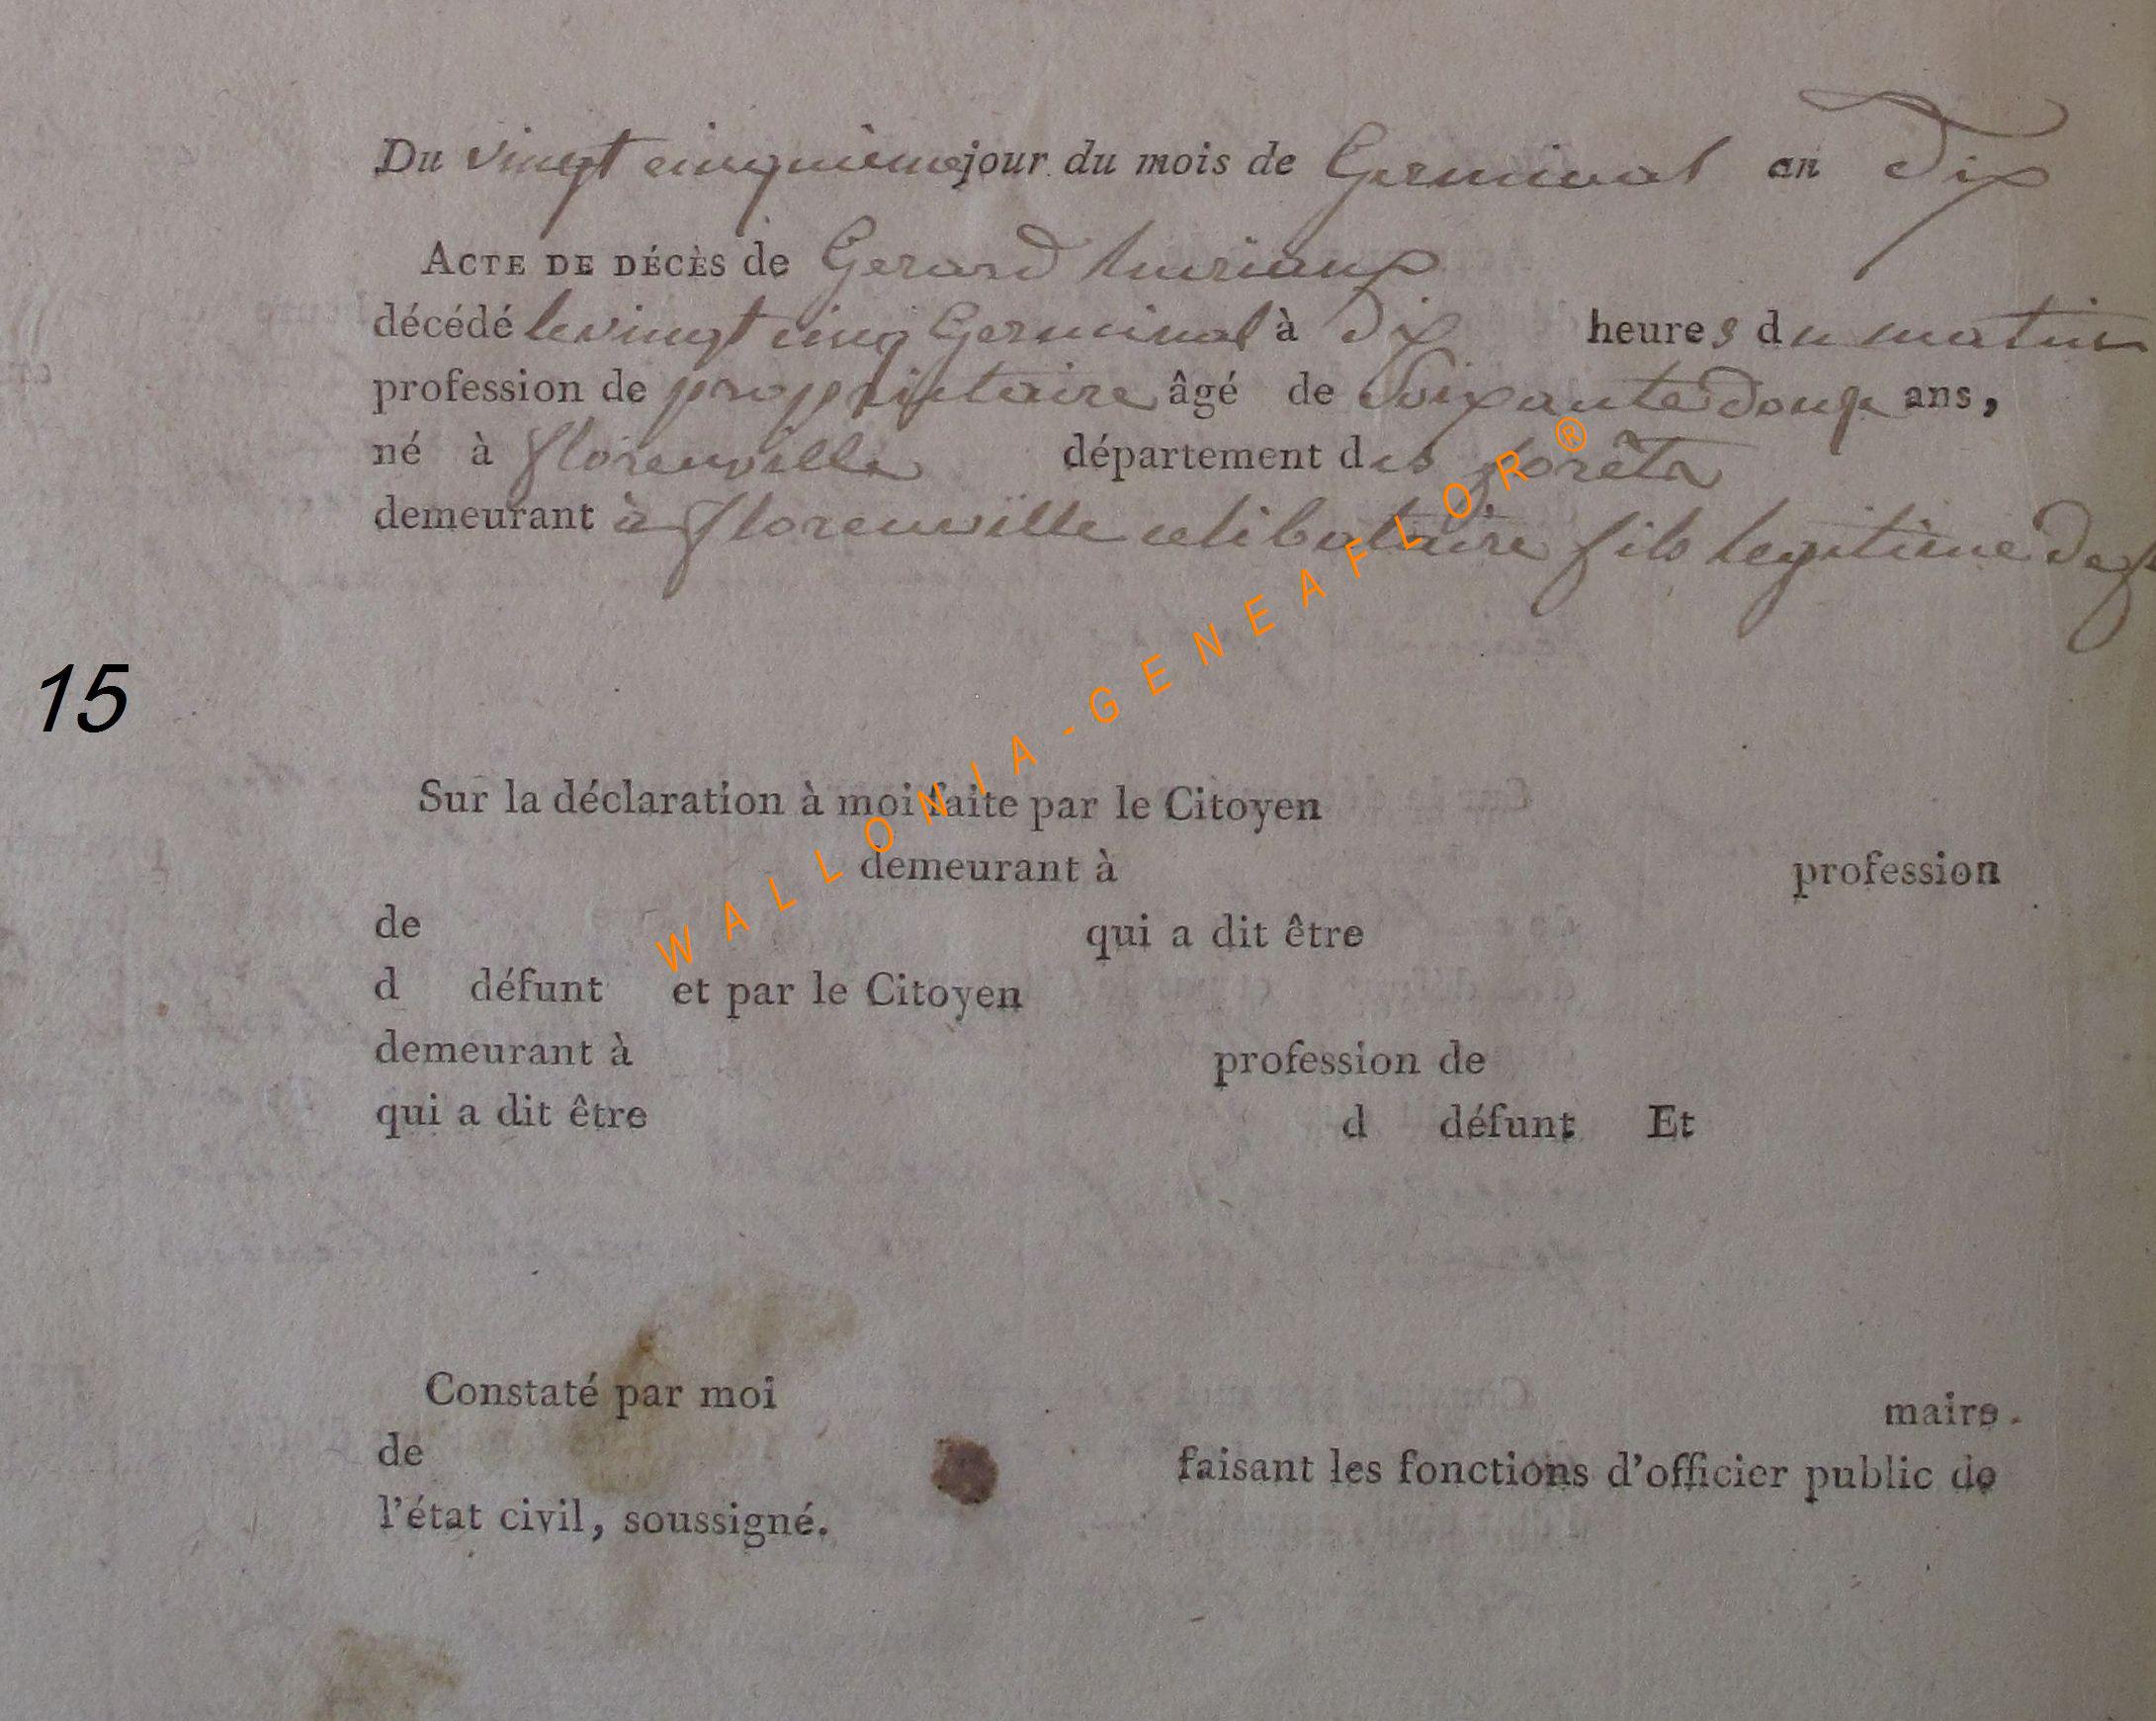 Du vingt cinquieme jour du mois de Germinal an Dix
ACTE DE DÉCÈS de Gerard
décédé le vingt cinq Germinal à Dix heures du matin
profession de proprietaire âgé de Soixante douze ans,
né à florenville département des forêts
demeurant à florenville celibataire fils legitime de
15
Sur la déclaration à moi faite par le Citoyen
demeurant à profession
de qui a dit être
d défunt et par le Citoyen
demeurant à profession de
qui a dit être d défunt Et
Constaté par moi maire.
de faisant les fonctions d'officier public de
l'état civil, soussigné.
WALLONIA-GENEAFLOR®